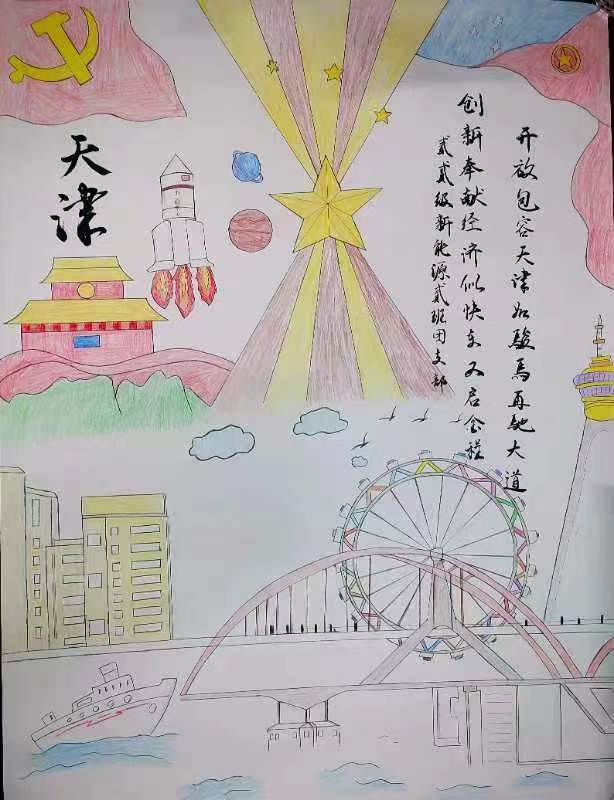 天津
开放包容天津如骏马再驰大道
创新奉献经济似快车又启全程
贰贰级新能源贰班团支部